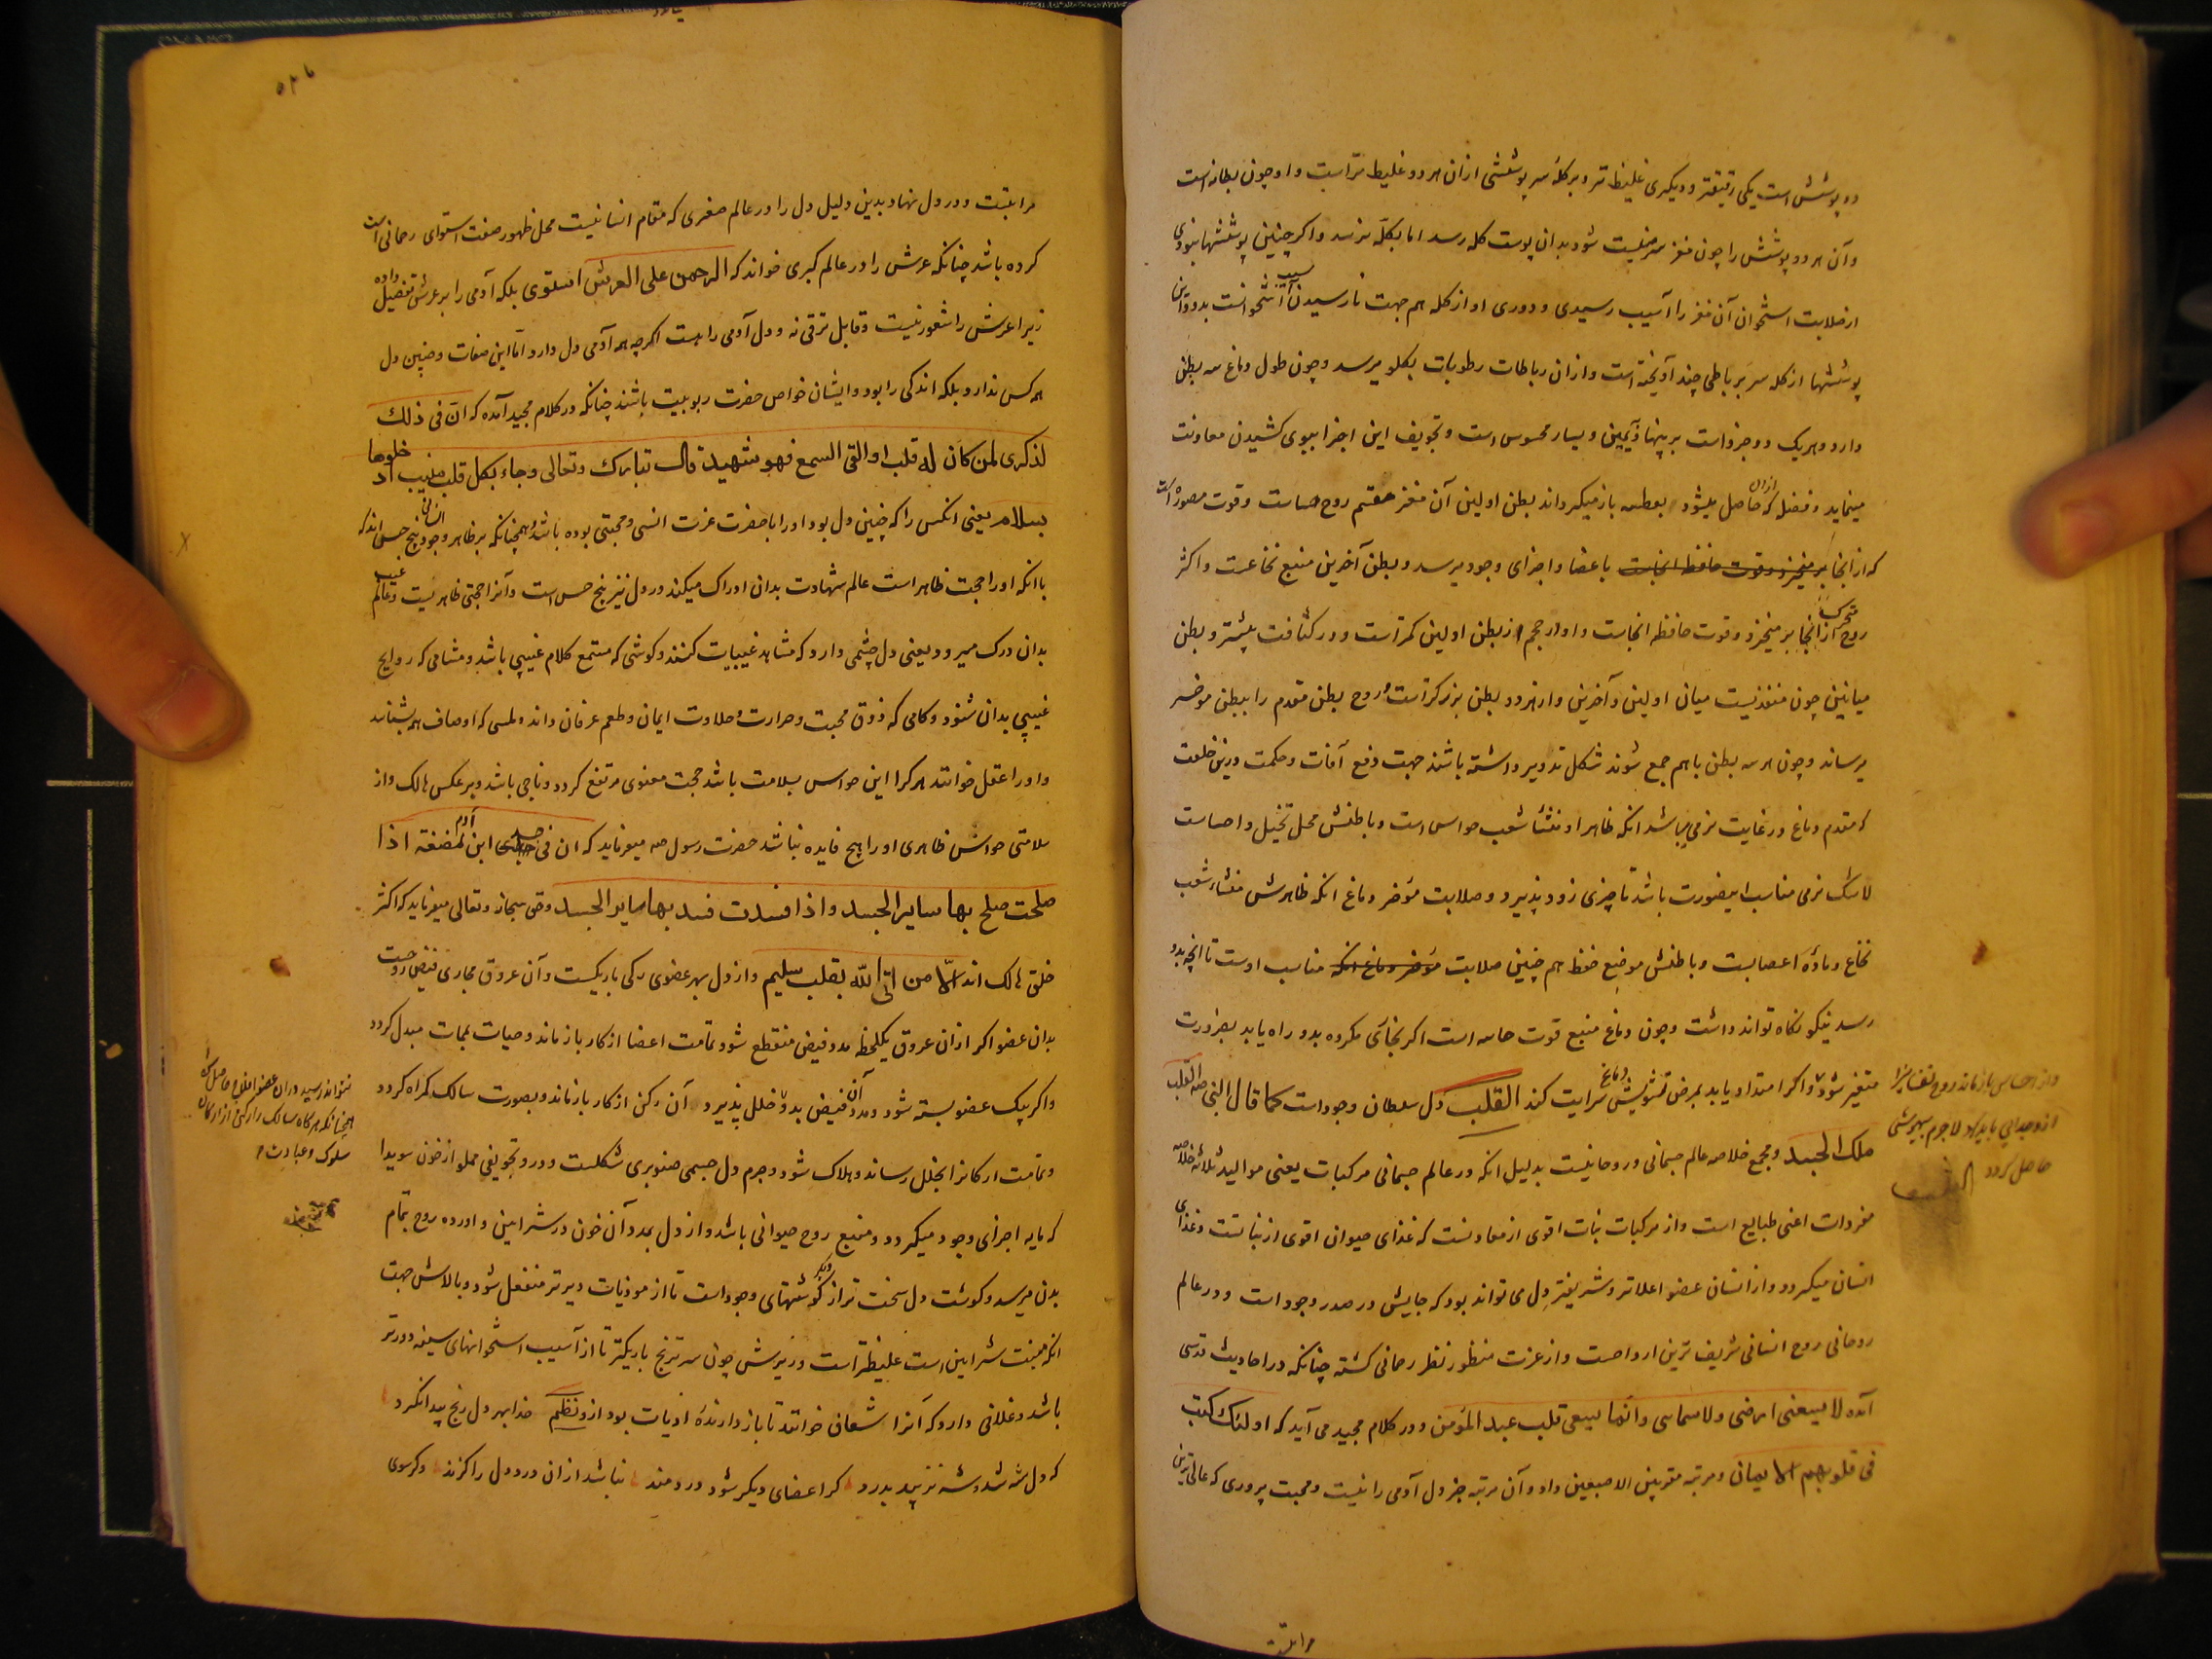 دو پوشش است یکی رقیقتر و دیگری غلیظ تر و بر کلهٔ سر پوششی ازان هر دو غلیظ تر است و او چون بطانه است
وآن هر دو پوشش را چون مغز سر منبسط شود بدان پوست کله رسد اما بکله نرسد و اگر چنین پوششها نبودی
از صلابت استخوان آن مغز را آسیب رسیدی و دوری او از کله هم جهت نارسیدن آسیب استخوانست بدو و این
پوششها از کله سر بر باطی چند آویخته است و ازان رباطات رطوبات بکلو میرسد و چون طول دماغ سه بطن
دارد و هر یک دو جزو است بر پهنا و یمین و یسار محسوس است و تجویف این اجزا ببوی کشیدن معاونت
مینماید و فضله که ازان حاصل میشود بعطسه باز میگرداند بطن اولین آن مغز مقسم روح حساست و قوت مصوره است
که از انجا باعضا و اجزای وجود میرسد و بطن آخرین منبع نخاعست و اکثر
روح متحرک از انجا بر میخیزد و قوت حافظه انجاست و او در حجم از بطن اولین کمتر است و در کثافت بیشتر و بطن
میانین چون منفذیست میان اولین و آخرین و از هر دو بطن بزرکتر است و روح بطن مقدم را ببطن موخر
میرساند و چون هر سه بطن با هم جمع شوند شکل تدویر داشته باشند جهت دفع آفات و حکمت درین خلقت
که مقدم دماغ در غایت نرمی میباشد انکه ظاهر او منشا شعب حواس است و باطنش محل تخیل و احساست
لاشک نرمی مناسب اینصورت باشد تا چیزی زود پذیرد و صلابت مؤخر دماغ انکه ظاهرش منشاء شعب
نخاع و مادهٔ اعصابست و باطنش موضع حفظ هم چنین صلابت مناسب اوست تا انچه بدو
رسد نیکو نگاه تواند داشت و چون دماغ منبع قوت حاسه است اکر بخای مکروه بدو راه یابد بضرورت
متغیر شود و اکر امتداد یابد بمرض تشویش دماغ سرایت کند القلب دل سلطان وجود است کما قال النبی صه القلب
ملک الجسد و مجمع خلاصه عالم جسمانی و روحانیست بدلیل انکه در عالم جسمانی مرکبات یعنی موالید ثلاثه خلاصه
مفردات اعنی طبایع است و از مرکبات نبات اقوی از معادنست که غذای حیوان اقوی از نباتست و غذای
انسان میکردد و از انسان عضو اعلاتر و شریفتر دل می تواند بود که جایش در صدر وجود است و در عالم
روحانی روح انسانی شریف ترین ارواحست و از عزت منظور نظر رحمانی کشته چنانکه در احادیث قدسی
آمده لا یسعنی ارضی ولا سمائی وانما یسعنی قلب عبد المؤمن و در کلام مجید می آید که اولئک کتب
فی قلوبهم الایمان و مرتبه بین الاصبعین داد و آن مرتبه جز دل آدمی را نیست و محبت پروری که عالی ترین
از وجدانی باید لاجرم بیهوشی
حاصل کردد
مراتبست
مراتبست و در دل نهاد بدین دلیل دل را در عالم صغری که مقام انسانیست محل ظهور صفت استوای رحمانی است
کرده باشد چنانکه عرش را در عالم کبری خواند که الرحمن علی العرش استوی بلکه آدمی را بر عرش تفضیل داده
زیرا عرش را شعور نیست و قابل ترقی نه و دل آدمی را هست اکرچه همه آدمی دل دارد اما این صفات و چنین دل
همه کس ندارد بلکه اندکی را بود و ایشان خواص حضرت ربوبیت باشند چنانکه در کلام مجید آمده که ان فی ذلک
لذکری لمن کان له قلب او القی السمع فهو شهید قال تبارک وتعالی وجاء بکل قلب منیب ادخلوها
بسلام یعنی انکس را که چنین دل بود او را با حضرت عزت انسی و محبتی بوده باشد و همچنانکه بر ظاهر وجود انسانی پنج حس اند که
با انکه او را حجت ظاهر است عالم شهادت بدان ادراک میکند در دل نیز پنج حس است و آنرا حجتی ظاهر نیست و عالم غیب
بدان درک میرود یعنی دل چشمی دارد که مشاهد غیبیات کنند و کوشی که مستمع کلام غیبی باشد و مشامی که روایح
غیبی بدان شنود و کامی که ذوق محبت و حرارت و حلاوت ایمان و طعم عرفان داند و لمسی که اوصاف هم بشناسد
و او را عقل خوانند هر کرا این حواس بسلامت باشد حجت معنوی مرتفع کردد و ناجی باشد و بر عکس هالک و از
سلامتی حواس ظاهری او را هیچ فایده نباشد حضرت رسول صه میفرماید که ان فی جسد ابن آدم لمضغة اذا
صلحت صلح بها سایر الجسد واذا فسدت فسد بها سایر الجسد وحق سبحانه و تعالی میفرماید که اکثر
خلق هالک اند الا من اتی الله بقلب سلیم و از دل بهر عضوی رکی باریکست و آن عروق مجاری فیض روحست
بدان عضو اکر ازان عروق یکلحظه مدد فیض منقطع شود تمامت اعضا از کار باز ماند و حیات بممات مبدل کردد
و اکر بیک عضو بسته شود و مدد آن فیض بدو خلل پذیرد آن رکن از کار باز ماند و بصورت سالک کمراه کردد
و تمامت ارکانرا بخلل رساند و هلاک شود و جرم دل جسمی صنوبری شکلست و درو تجویفی مملو از خون سویدا
که مایه اجزای وجود میکردد و منبع روح حیوانی باشد و از دل بمدد آن خون در شرایین و اورده روح بتمام
بدن میرسد و کوشت دل سخت تر از دیگر کوشتهای وجود است تا از موذیات دیرتر منفعل شود و بالاش جهت
انکه منبت شرایین است غلیظتر است و زیرش چون سر ترنج باریکتر تا از آسیب استخوانهای سینه دورتر
باشد و غلافی دارد که آنرا شغاف خوانند تا باز دارندهٔ اذیات بود ازو نظم خدا بهر دل رنج پیدا نکرد
که دل شه شد و شه نزیبد بدرد کر اعضای دیکر شود دردمند نباشد ازان درد دل را کزند وکر سوی
نتواند رسید و ازان عضو حاصل است
همچنانکه هرکاه سالک را رکنی از ارکان
سلوک و عبادت